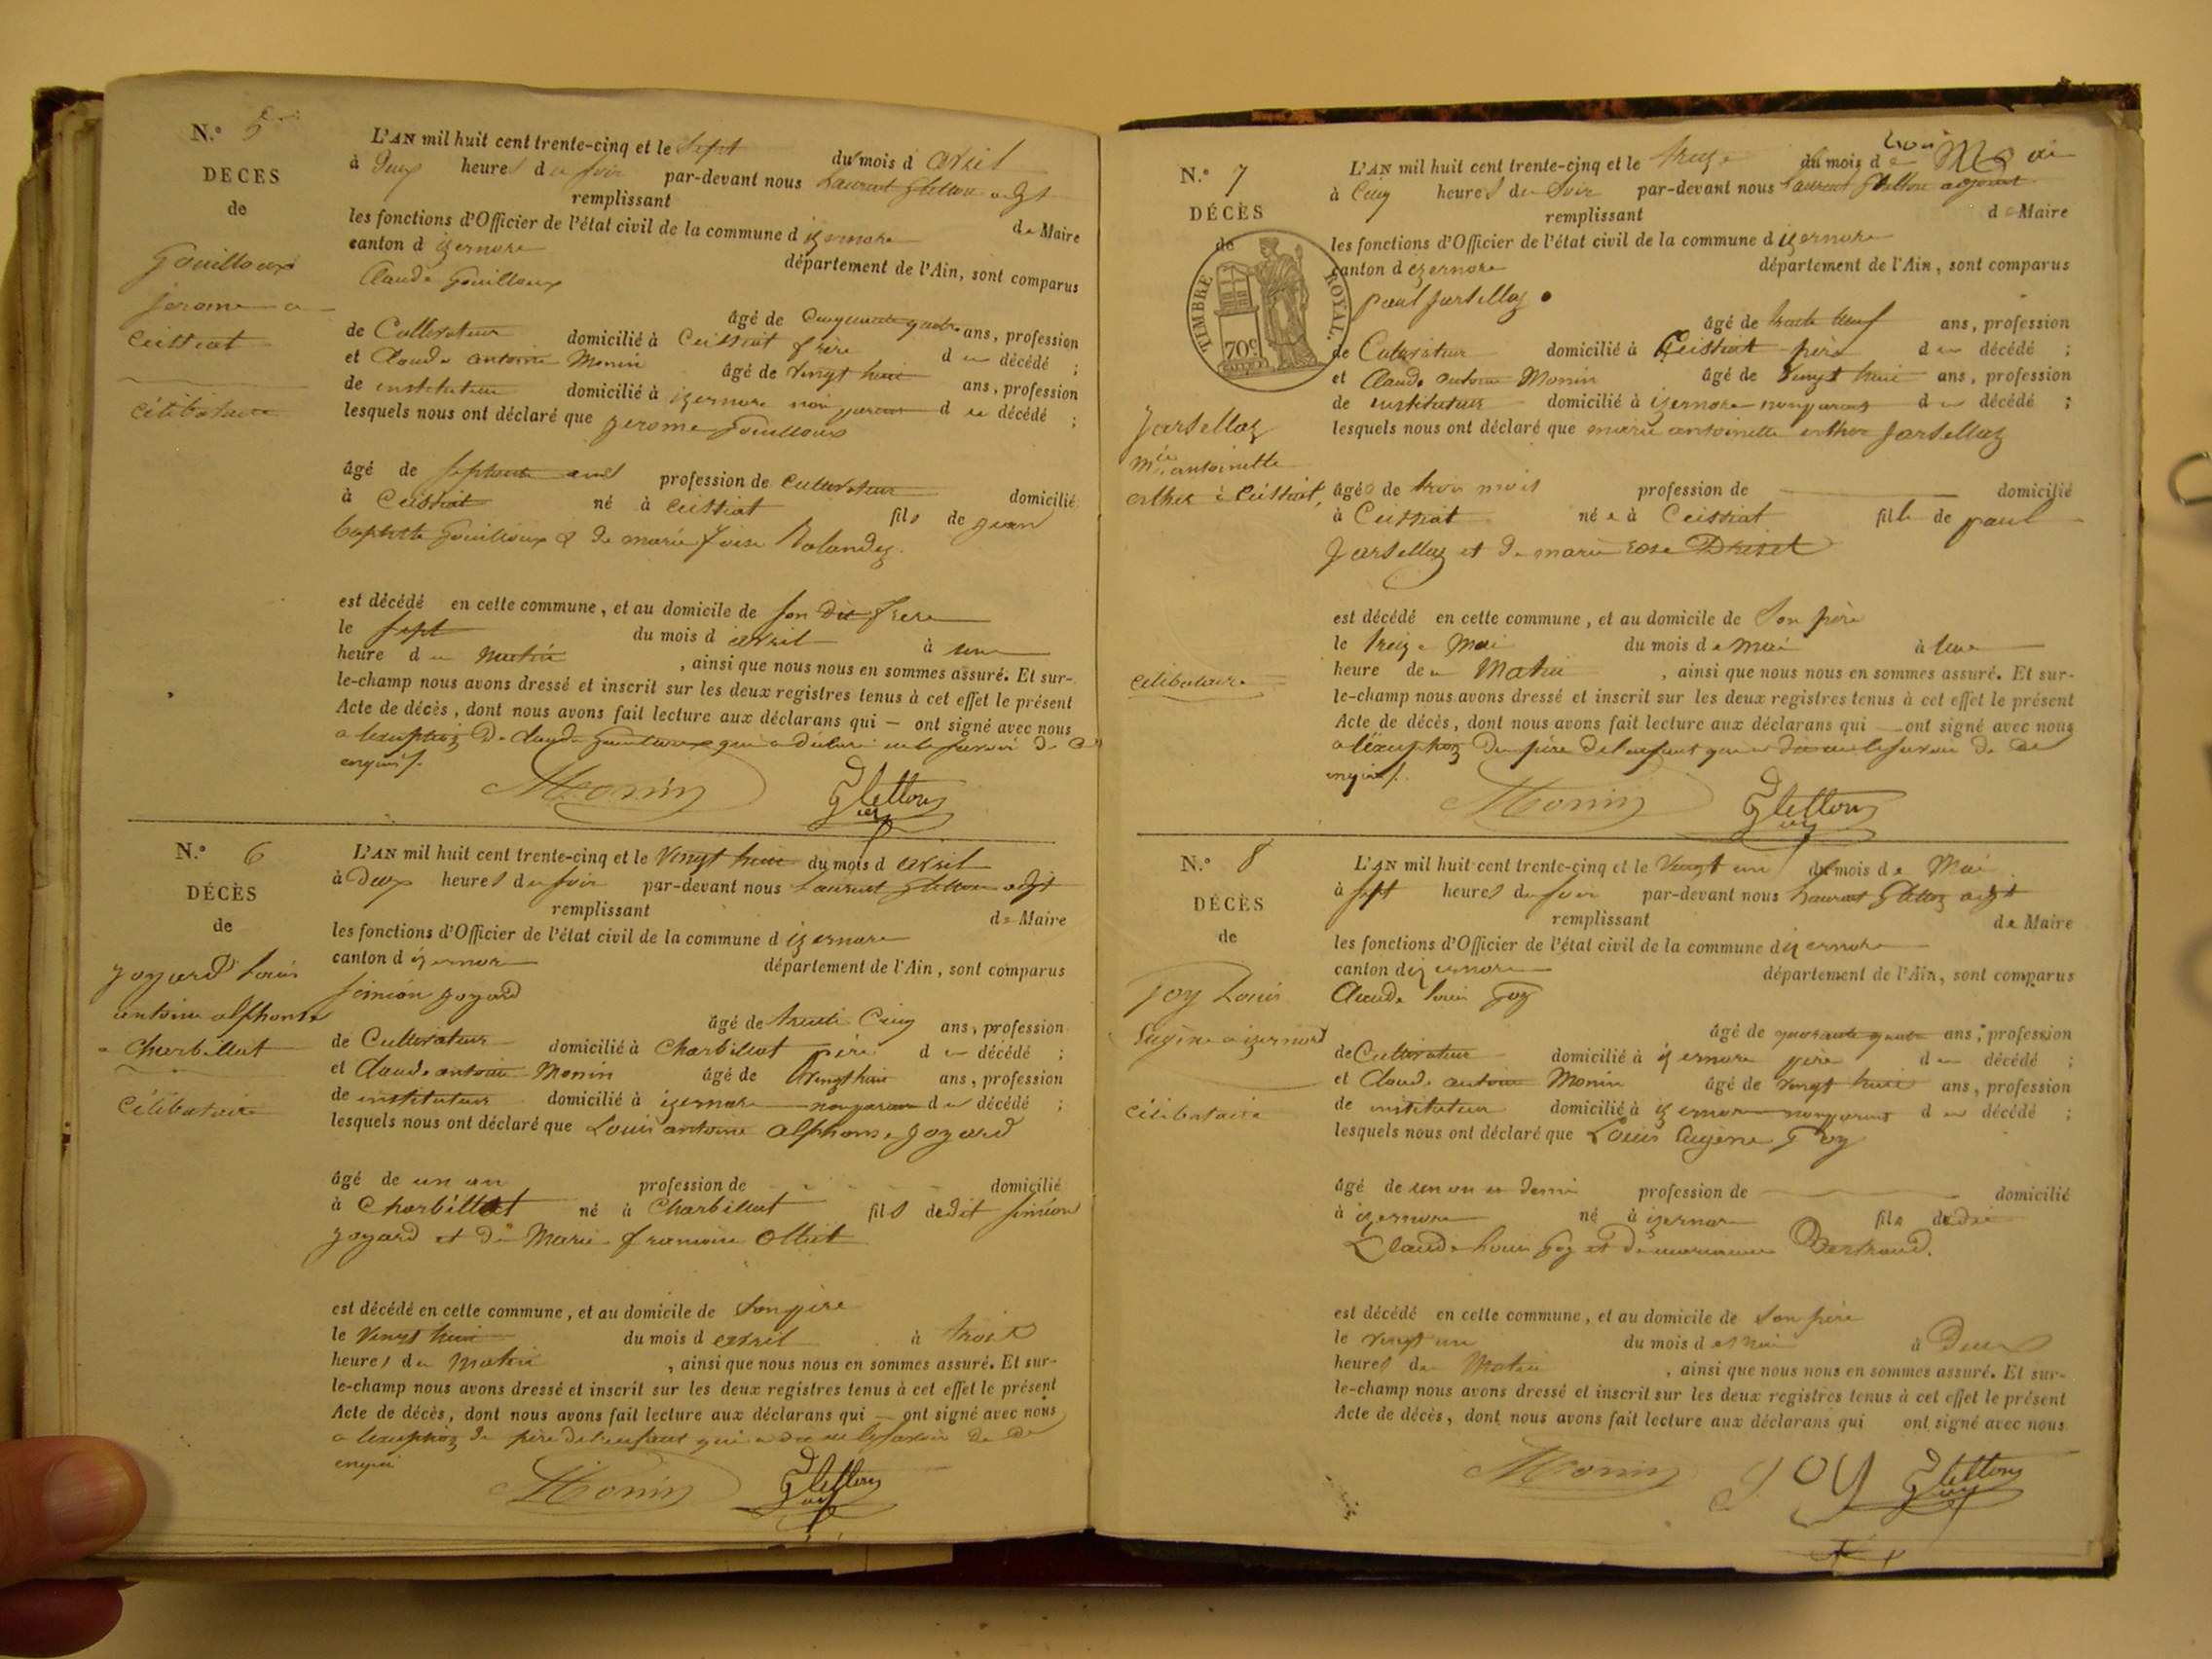 N.° 5
DECES
de
Gouilloux
Jerome a
Ceissiat
célibataire
L'AN mil huit cent trente-cinq et le Sept du mois d avril
à Deux heures du soir par-devant nous Laurent Gletton adjt
remplissant
les fonctions d'Officier de l'état civil de la commune d izernore de Maire
canton d izernore
département de l'Ain, sont comparus
Claude Gouilloux
âgé de Cinquante quatre ans, profession
de Cultivateur domicilié à Ceissiat frère d u décédé ;
et Claude antoine Monin âgé de vingt huit ans, profession
de instituteur domicilié à izernore non parent d u décédé ;
lesquels nous ont déclaré que Jerome Gouilloux
âgé de septante ans profession de cultivateur domicilié
à Ceissiat né à Ceissiat fils de jean
baptiste Gouilloux & de marie Rolandez.
est décédé en cette commune, et au domicile de son dit frere
le sept du mois d avril à une
heure d u matin , ainsi que nous nous en sommes assuré. Et sur-
le-champ nous avons dressé et inscrit sur les deux registres tenus à cet effet le présent
Acte de décès, dont nous avons fait lecture aux déclarans qui — ont signé avec nous
a lexception De claude Gouilloux qui a déclaré ne le savoir de ce
enquis /.
Monin Gletton
N.° 6
DÉCÈS
de
Joyard Louis
antoine alphonse
a Charbillat
célibataire
L'AN mil huit cent trente-cinq et le vingt huit du mois d avril
à Deux heures du soir par-devant nous Laurent Gletton adjt
remplissant de Maire
les fonctions d'Officier de l'état civil de la commune d izernore
canton d izernore département de l'Ain, sont comparus
siméon joyard
âgé de trente Cinq ans, profession
de Cultivateur domicilié à Charbillat père d u décédé ;
et Claude antoine Monin âgé de vingt huit ans, profession
de instituteur domicilié à izernore non parent d u décédé ;
lesquels nous ont déclaré que Louis antoine alphonse joyard
âgé de un an profession de domicilié
à Charbillat né à Charbillat fils de dit siméon
joyard et de Marie francoise Olliet
est décédé en cette commune, et au domicile de Son père
le vingt huit du mois d avril à trois
heures du matin , ainsi que nous nous en sommes assuré. Et sur-
le-champ nous avons dressé et inscrit sur les deux registres tenus à cet effet le présent
Acte de décès, dont nous avons fait lecture aux déclarans qui — ont signé avec nous
a lexception du père de l'enfant qui a dit ne le savoir de ce
enquis
Monin Gletton
N.° 7
DÉCÈS
de
TIMBRE ROYAL.
70c
Jarsellaz
Mie antoinette
esther à Ceissiat,
célibataire
L'AN mil huit cent trente-cinq et le treize du mois de Mai
à Cinq heures du Soir par-devant nous Laurent Gletton adjoint
remplissant de Maire
les fonctions d'Officier de l'état civil de la commune d izernore
canton d izernore département de l'Ain, sont comparus
paul jarsellaz
âgé de trente neuf ans, profession
de Cultivateur domicilié à Ceissiat père d u décédé ;
et Claude antoine Monin âgé de vingt huit ans, profession
de instituteur domicilié à izernore non parent d u décédé ;
lesquels nous ont déclaré que marie antoinette esther jarsellaz
âgée de trois mois profession de domicilié
à Ceissiat née à Ceissiat fille de paul
jarsellaz et de marie rose
est décédé en cette commune, et au domicile de Son père
le treize Mai du mois de mai à une
heure de u Matin , ainsi que nous nous en sommes assuré. Et sur-
le-champ nous avons dressé et inscrit sur les deux registres tenus à cet effet le présent
Acte de décès, dont nous avons fait lecture aux déclarans qui — ont signé avec nous
a léxception du père de l'enfant qui a dit ne le savoir de ce
enquis /.
Monin Gletton
N.° 8
DÉCÈS
de
Goy Louis
Eugène a izernore
célibataire
L'AN mil huit cent trente-cinq et le vingt un du mois de Mai
à sept heures du soir par-devant nous Laurent Gletton adjt
remplissant de Maire
les fonctions d'Officier de l'état civil de la commune d izernore
canton d izernore département de l'Ain, sont comparus
Claude Louis Goy
âgé de quarante quatre ans, profession
de Cultivateur domicilié à izernore père d u décédé ;
et Claude antoine Monin âgé de vingt huit ans, profession
de instituteur domicilié à izernore non parent d u décédé ;
lesquels nous ont déclaré que Louis Eugène Goy
âgé de un an et demi profession de domicilié
à izernore né à izernore fils de dit
Claude Louis Goy et de marianne Bertrand.
est décédé en cette commune, et au domicile de Son père
le vingt un du mois de Mai à Deux
heures du Matin , ainsi que nous nous en sommes assuré. Et sur-
le-champ nous avons dressé et inscrit sur les deux registres tenus à cet effet le présent
Acte de décès, dont nous avons fait lecture aux déclarans qui ont signé avec nous
Monin Goy Gletton